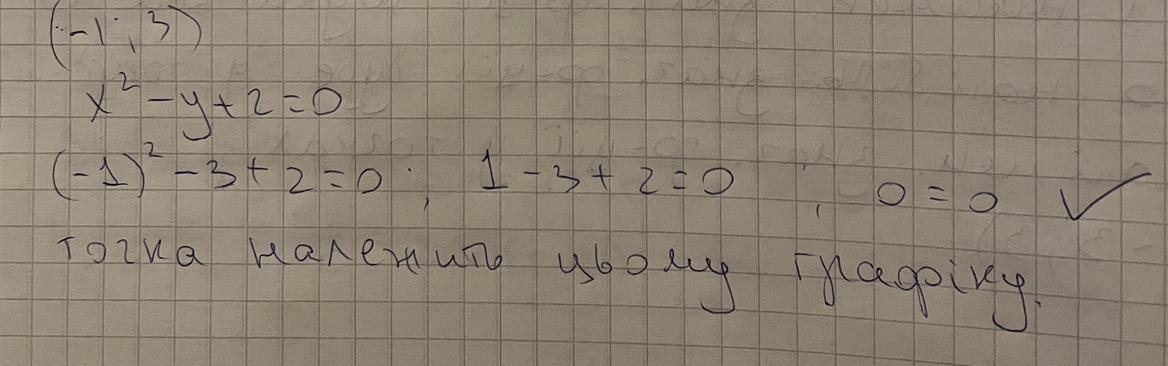 (-1; 3)
x² - y + 2 = 0
(-1)² - 3 + 2 = 0; 1 - 3 + 2 = 0; 0 = 0 ✓
точка належить цьому графіку.